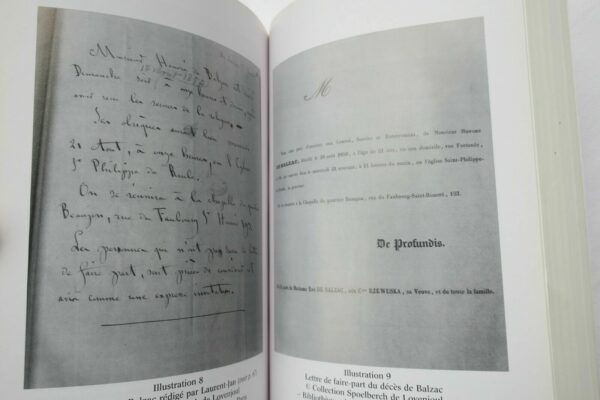 Monsieur Honoré de Balzac est
Dimanche soir, à onze heures et demie,
avoir reçu les secours de la religion.
Ses obsèques auront lieu mercredi
21 Aout, à onze heures, en l'Eglise
St Philippe du Roule.
On se réunira à la chapelle du quartier
Beaujon, rue du Faubourg St Honoré 193.
Les personnes qui n'ont pas de billet
de faire part, sont priées de considérer cet
avis comme une expresse invitation.
Illustration 8
Balzac rédigé par Laurent-Jan (voir p.
M
Vous êtes prié d'assister aux Convoi, Service et Enterrement, de Monsieur Honoré
DE BALZAC, décédé le 18 août 1850, à l'âge de 51 ans, en son domicile, rue Fortunée,
qui se feront le mercredi 21 courant, à 11 heures du matin, en l'église Saint-Philippe-
du-Roule, sa paroisse.
On se réunira à la Chapelle du quartier Beaujon, rue du Faubourg-Saint-Honoré, 193.
De Profundis.
De la part de Madame Eve DE BALZAC, née Ctesse RZEWUSKA, sa Veuve, et de toute la famille.
Illustration 9
Lettre de faire-part du décès de Balzac
© Collection Spoelberch de Lovenjoul